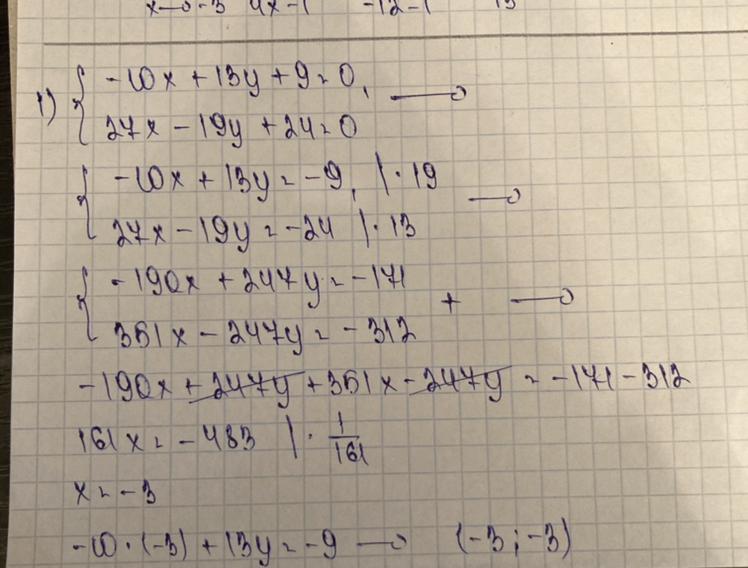 x→-3 4x-1 -12-1 13
1) { -10x + 13y + 9 = 0, →
27x - 19y + 24 = 0
{ -10x + 13y = -9, | · 19 →
27x - 19y = -24 | · 13
{ -190x + 247y = -171 + →
351x - 247y = -312
-190x + 247y + 351x - 247y = -171 - 312
161x = -483 | · 1/161
x = -3
-10 · (-3) + 13y = -9 → (-3; -3)